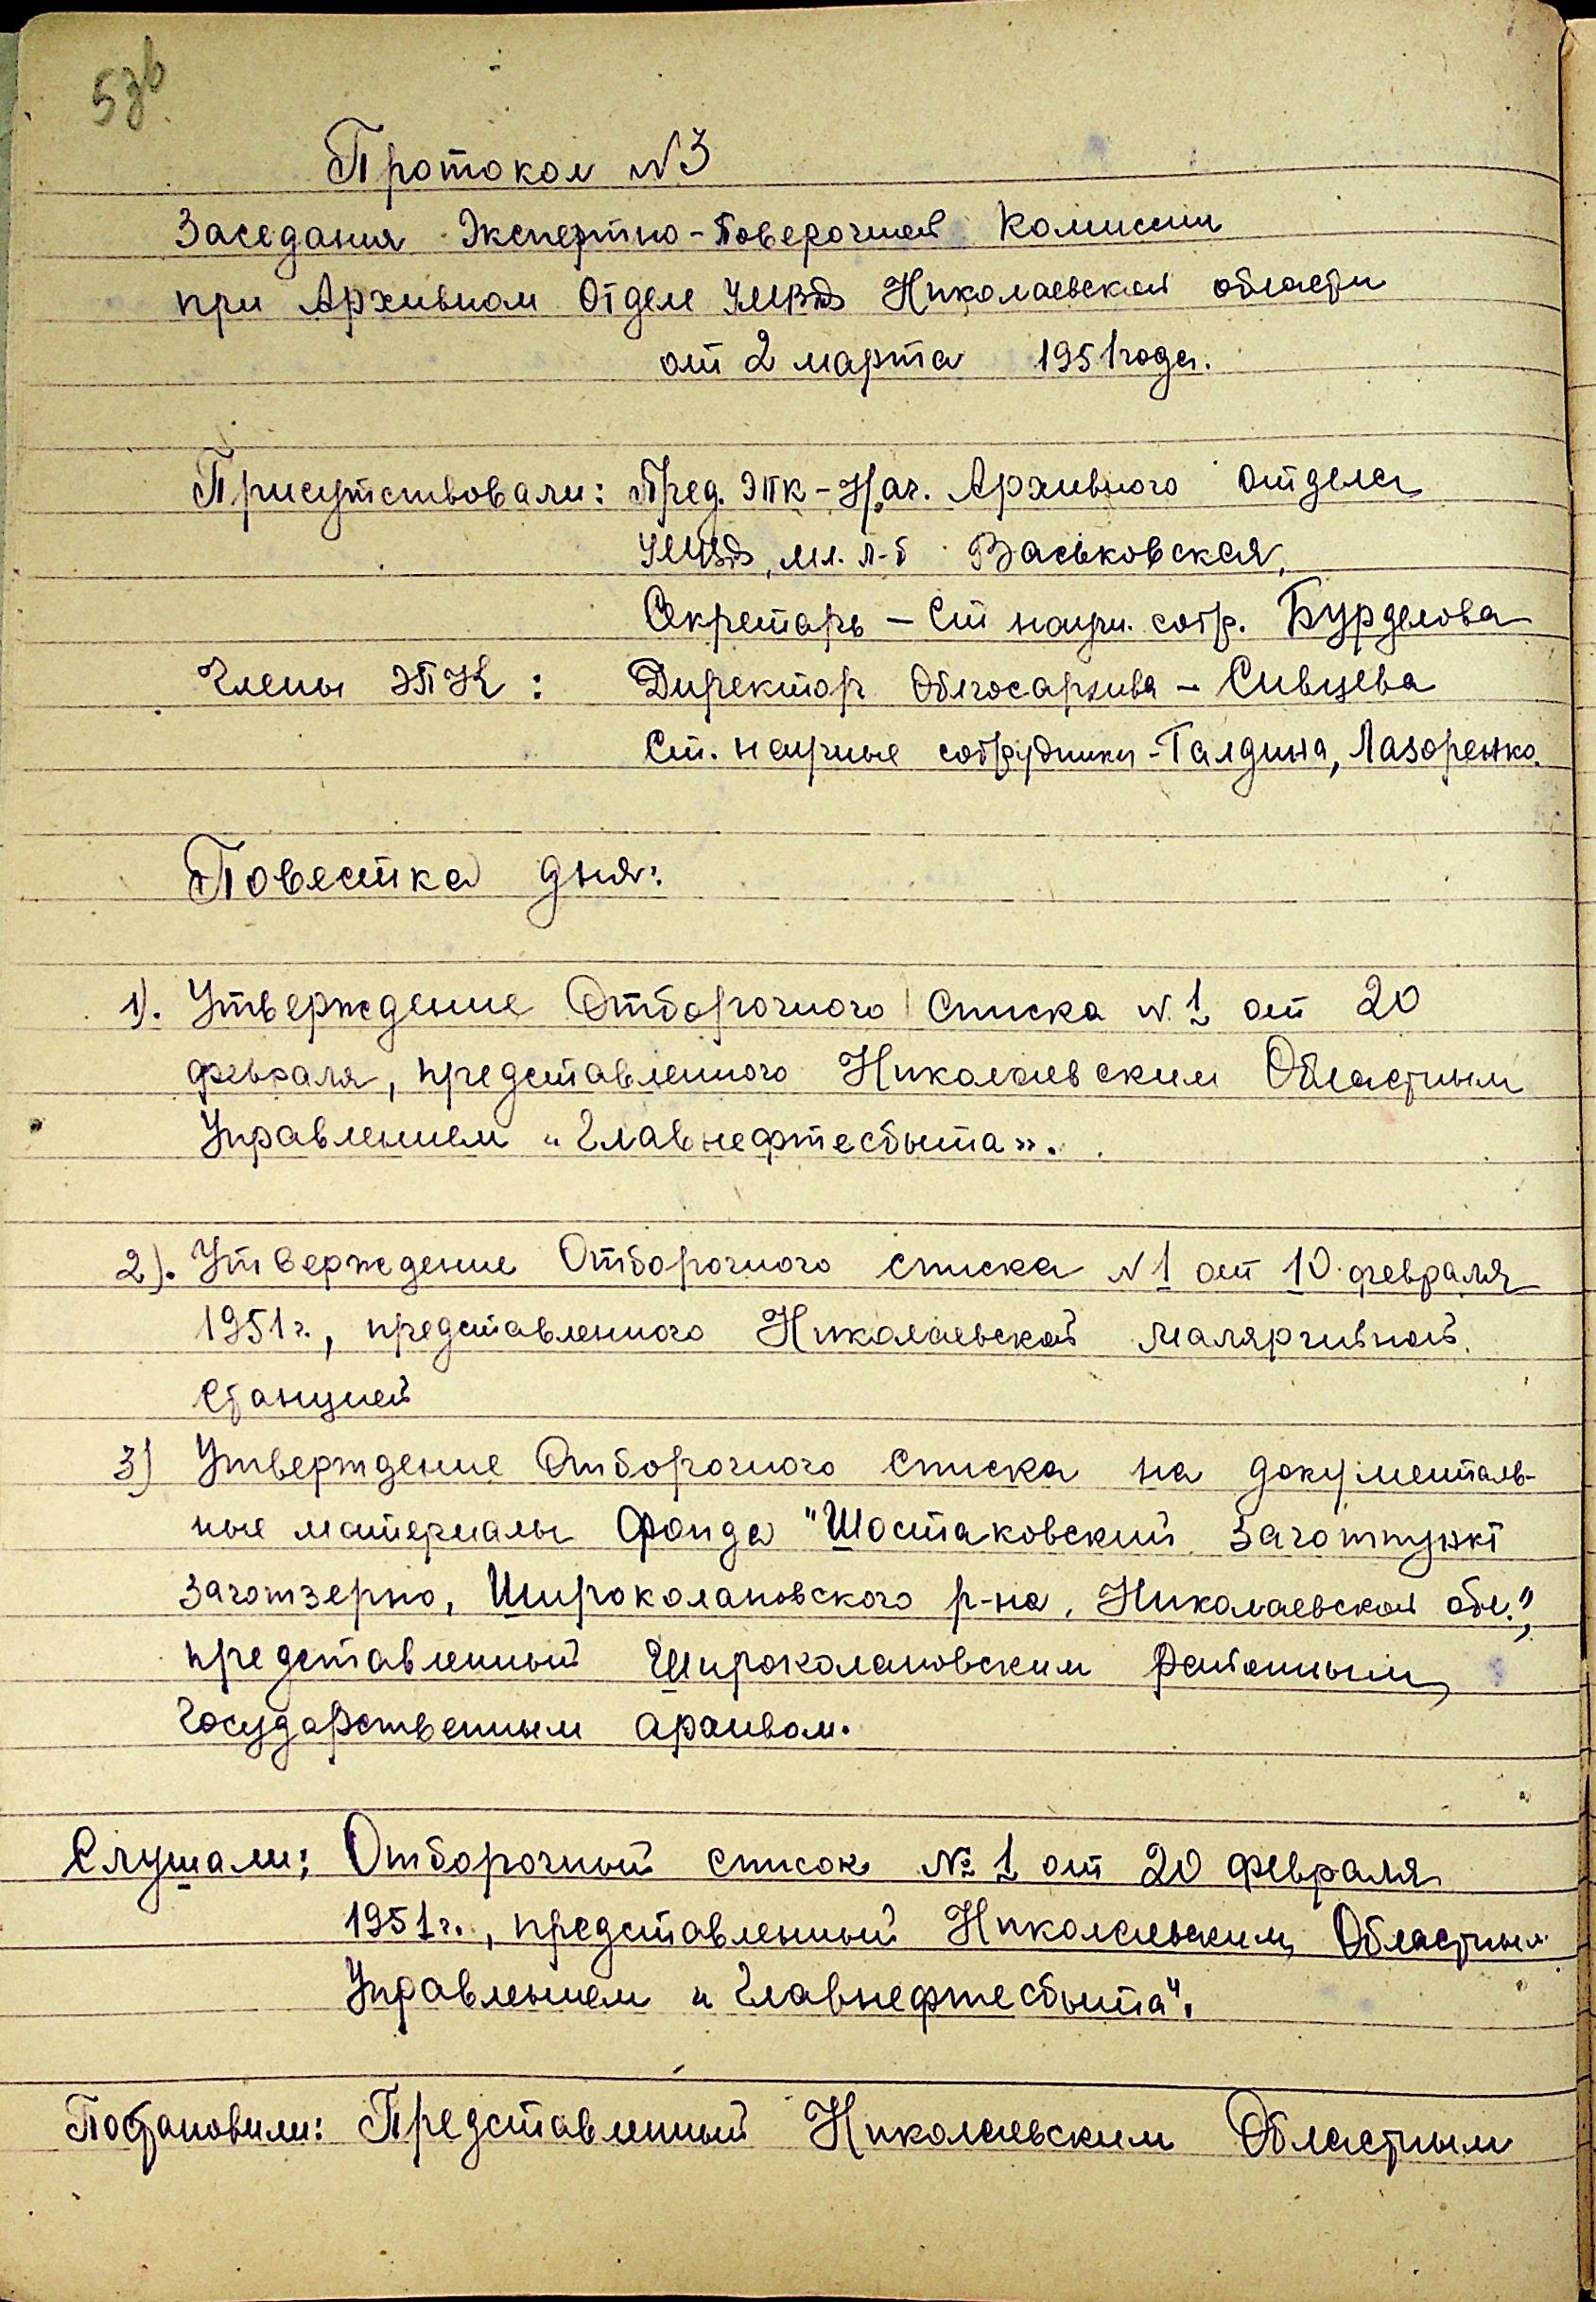 53б
Протокол №3
Заседания Экспертно-Поверочной Комиссии
при Архивном Отделе УМВД Николаевской области
от 2 марта 1951 года.
Присутствовали: Пред. ЭПК - Нач. Архивного отдела
УМВД, мл. л-т Васьковская,
Секретарь - Ст научн. сотр. Бурделова
Члены ЭПК: Директор Облгосархива - Сивцева
Ст. научные сотрудники - Галдина, Лазоренко.
Повестка дня:
1). Утверждение Отборочного Списка №1 от 20
февраля, представленного Николаевским Областным
Управлением „Главнефтесбыта".
2). Утверждение Отборочного списка №1 от 10 февраля
1951г., представленного Николаевской малярийной
станцией
3) Утверждение Отборочного Списка на документаль-
ные материалы Фонда "Шостаковский Заготпункт
Заготзерно, Широколановского р-на, Николаевской обл.",
представленный Широколановским Районным
Государственным архивом.
Слушали: Отборочный список № 1 от 20 февраля
1951г., представленный Николаевским Областным
Управлением „Главнефтесбыта".
Постановили: Представленный Николаевским Областным